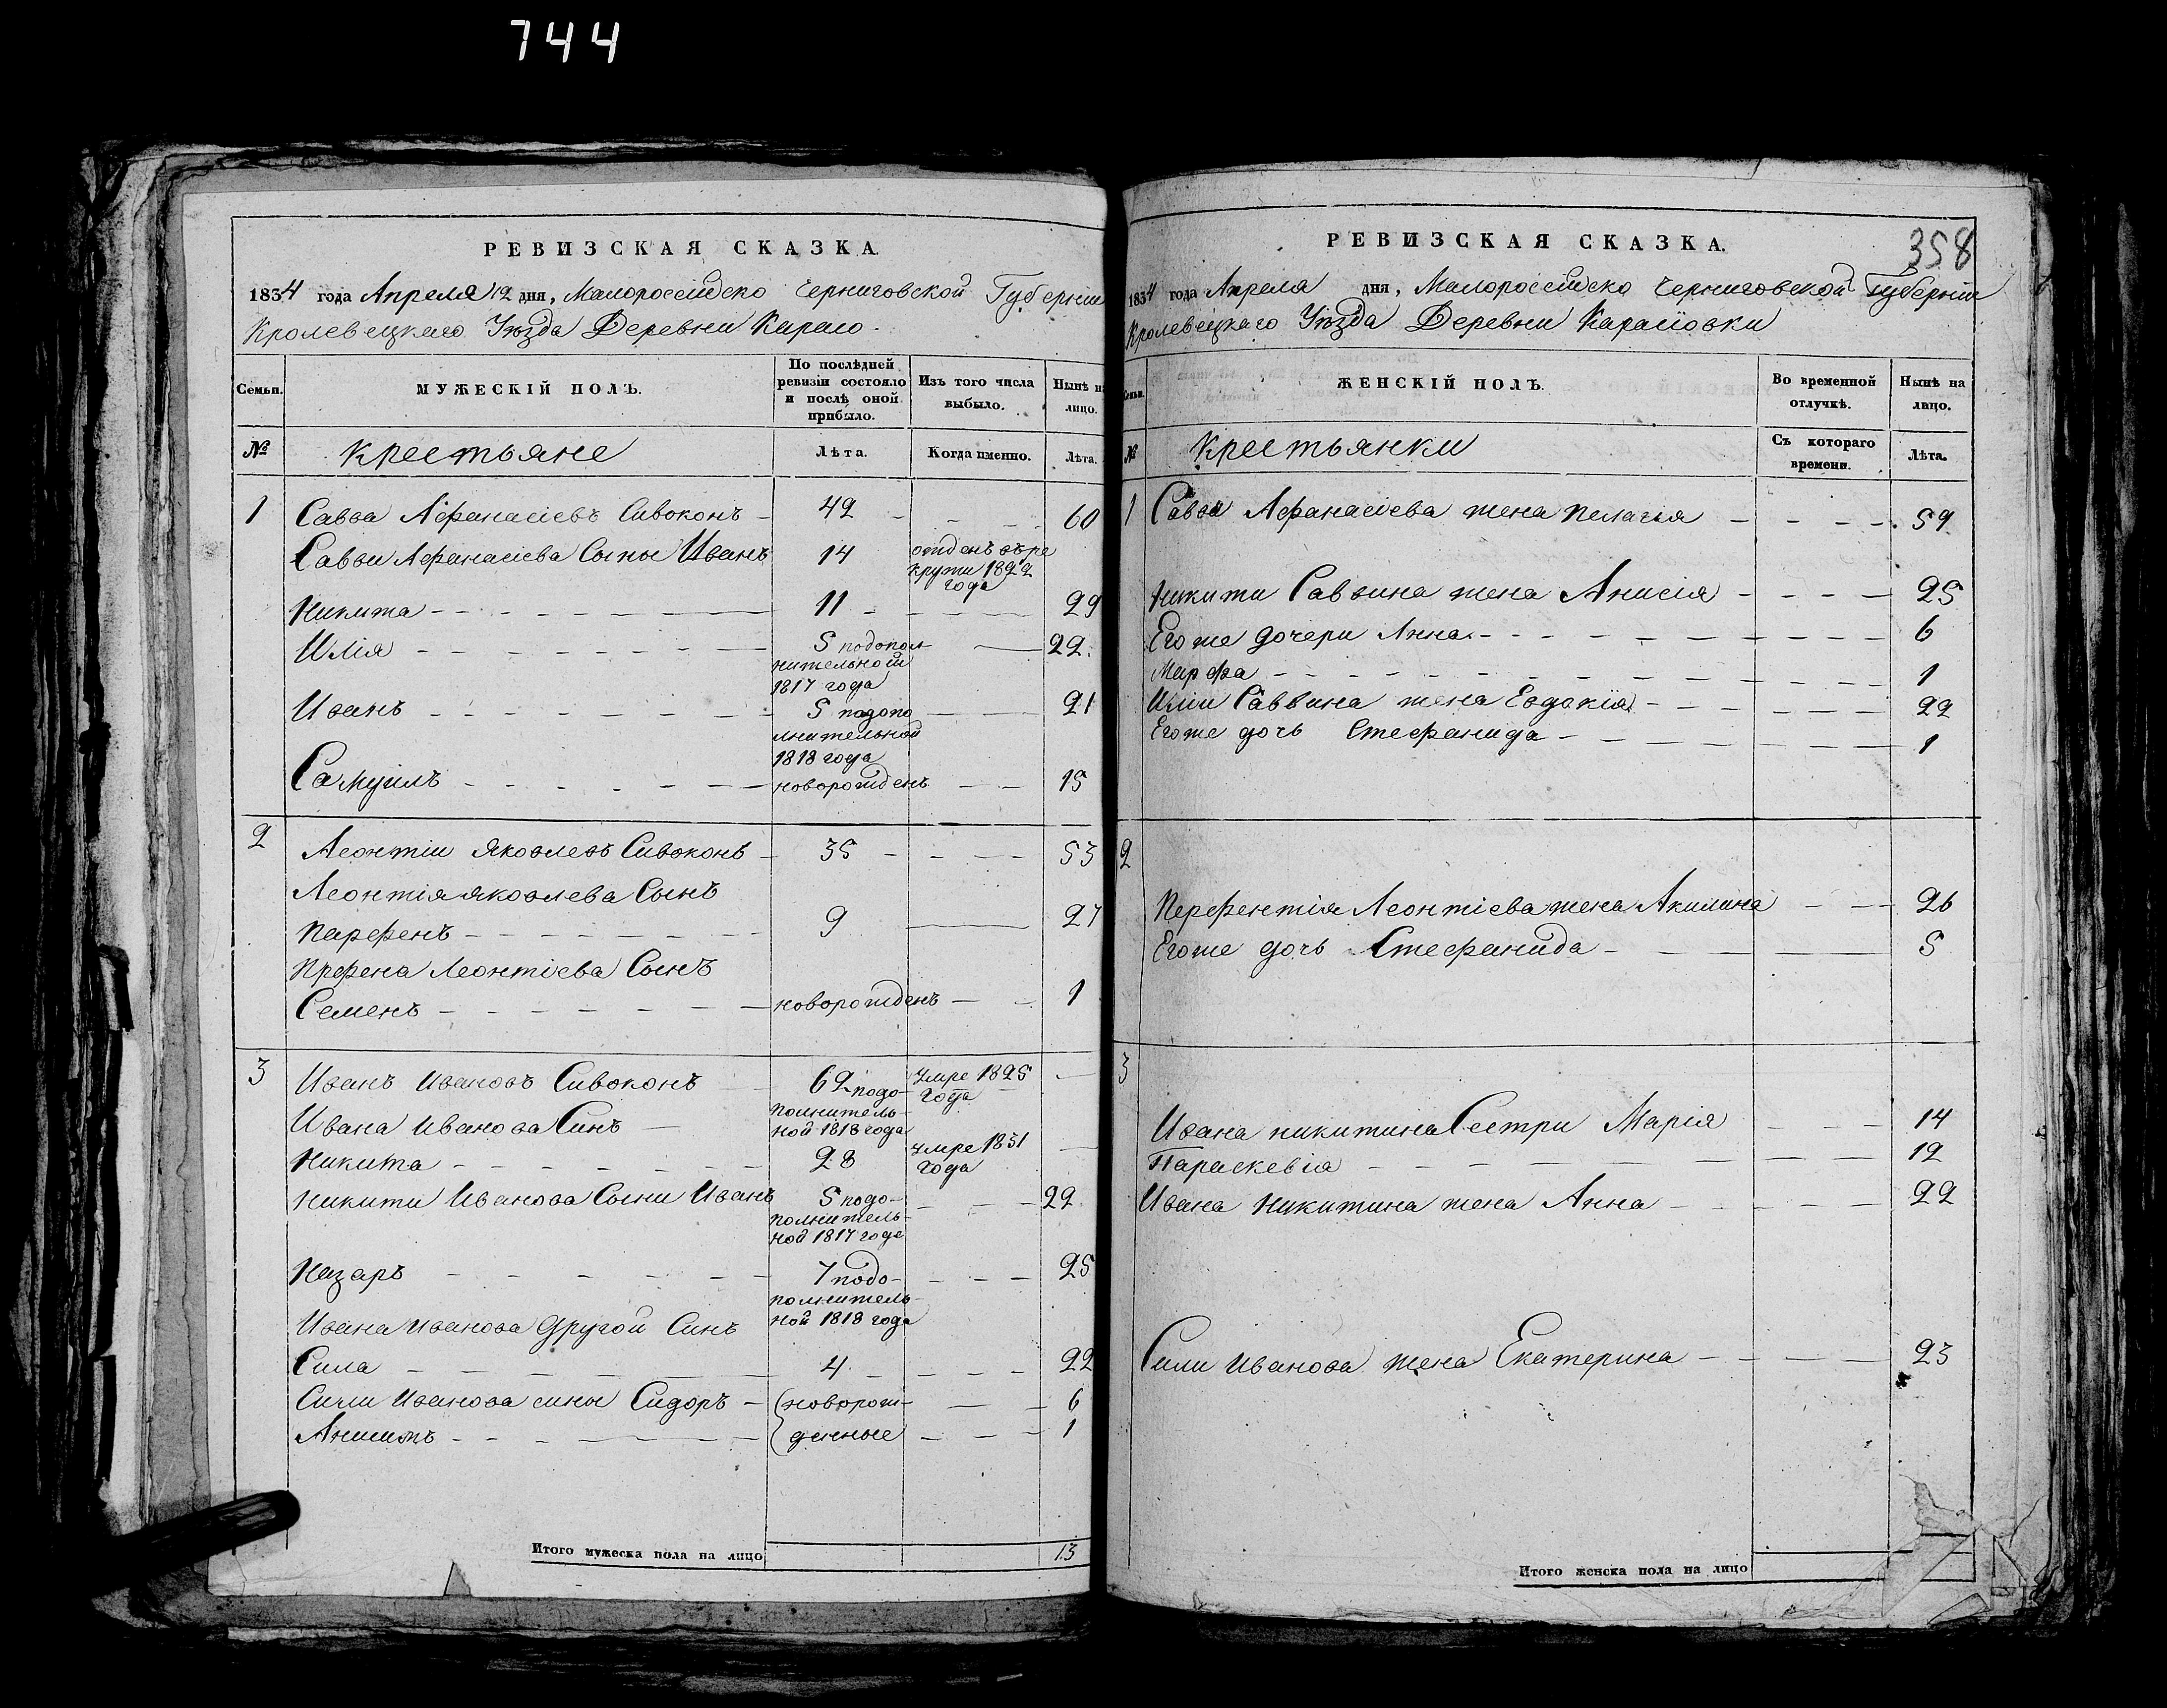 744
РЕВИЗСКАЯ СКАЗКА.
1834 года Апреля 12 дня, Малоросеійско Черниговской Губерніи
Кролевецкаго Уѣзда Деревни Карало
Семьи.
МУЖЕСКІЙ ПОЛЪ.
По послѣдней ревизіи состояло и послѣ оной прибыло.
Изъ того числа выбыло.
Нынѣ на лицо.
№
Крестьяне
Лѣта.
Когда именно.
Лѣта.
1 Савва Афанасіевъ Сивоконъ 49 60
Саввы Афанасіева Сыны Иванъ 14 отденъ въ ре
круты 1822
года
Никита 11 29
Илія 5 подопол
нительной
1817 года 22
Иванъ 5 подопо
лнительной
1818 года 21
Самуилъ новорожденъ 15
2 Леонтіи Яковлевъ Сивоконъ 35 53
Леонтія яковлева Сынъ
Парфенъ 9 27
Прфена Леонтіева Сынъ
Семенъ новорожденъ 1
3 Иванъ Ивановъ Сивоконъ 62 подо
полнитель
ной 1818 года умре 1825
года
Ивана Иванова Синъ
Никита 28 умре 1831
года
Никити Иванова Сыни Иванъ 5 подо-
полнитель-
ной 1817 года 22
Назаръ 7 подо-
полнитель-
ной 1818 года 25
Ивана Иванова другой Синъ
Сила 4 22
Сили Иванова сины Сидоръ новорож- 6
Анисимъ денные 1
Итого мужеска пола на лицо 13
РЕВИЗСКАЯ СКАЗКА.
358
1834 года Апреля дня, Малоросеійско Черниговской Губерніи
Кролевецкаго Уѣзда Деревни
Семьи.
ЖЕНСКІЙ ПОЛЪ.
Во временной отлучкѣ.
Нынѣ на лицо.
№
Крестьянки
Съ котораго времени.
Лѣта.
1 Саввы Афанасіева жена Пелагія 59
Никити Саввина жена Анисія 25
Егоже дочери Анна 6
Марфа 1
Иліи Саввина жена Евдокія 22
Егоже дочь Стефанида 1
2
Перфентія Леонтіева жена Акилина 26
Егоже дочь Стефанида 5
3
Ивана Никитина Сестри Марія 14
Параскевія 12
Ивана Никитина жена Анна 22
Сили Иванова жена Екатерина 23
Итого женска пола на лицо